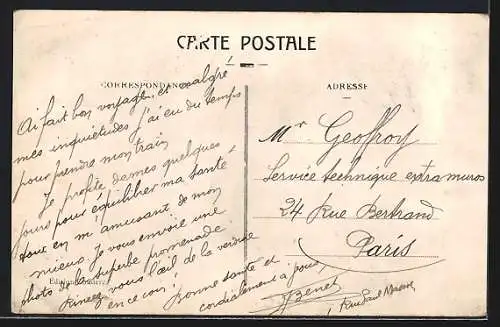 CARTE POSTALE
CORRESPONDANCE
ADRESSE
Ai fait bon voyage, et malgré
mes inquiétudes j'ai eu du temps
pour prendre mon train
Je profite de mes quelques
jours pour équilibrer ma santé
tout en m'amusant de mon
mieux. Je vous envoie une
photo de la superbe promenade
vous l'œil de la verdure
en ce coin!
Bonne santé et
cordialement à vous,
Benet
Mr Geoffroy
Service technique extra muros
24 Rue Bertrand
Paris